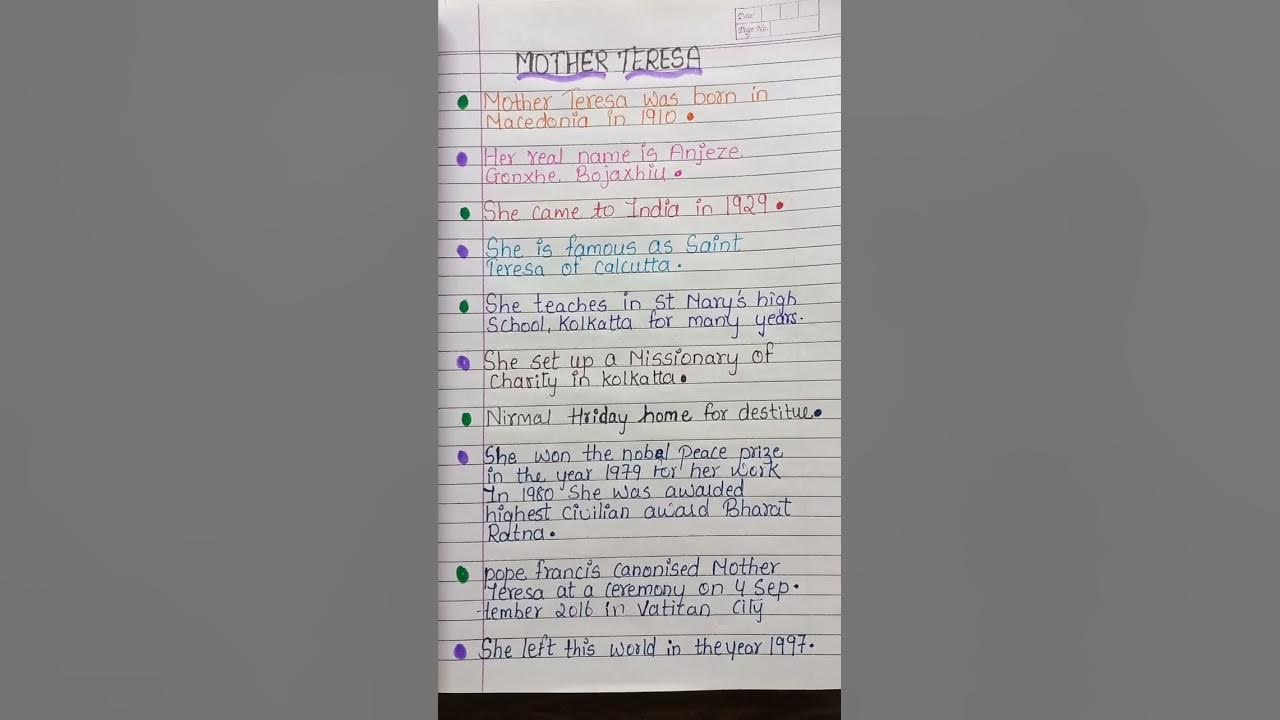 Date
Page No.
MOTHER TERESA
Mother Teresa was born in
Macedonia in 1910.
Her real name is Anjeze
Gonxhe Bojaxhiu.
She came to India in 1929.
She is famous as Saint
Teresa of Calcutta.
She teaches in St Mary's high
School, Kolkatta for many years.
She set up a Missionary of
Charity in Kolkatta.
Nirmal Hriday home for destitue.
She won the nobel Peace prize
in the year 1979 for her work
In 1980 She was awarded
highest civilian award Bharat
Ratna.
pope francis canonised Mother
Teresa at a ceremony on 4 Sep-
-tember 2016 in Vatitan City
She left this world in the year 1997.